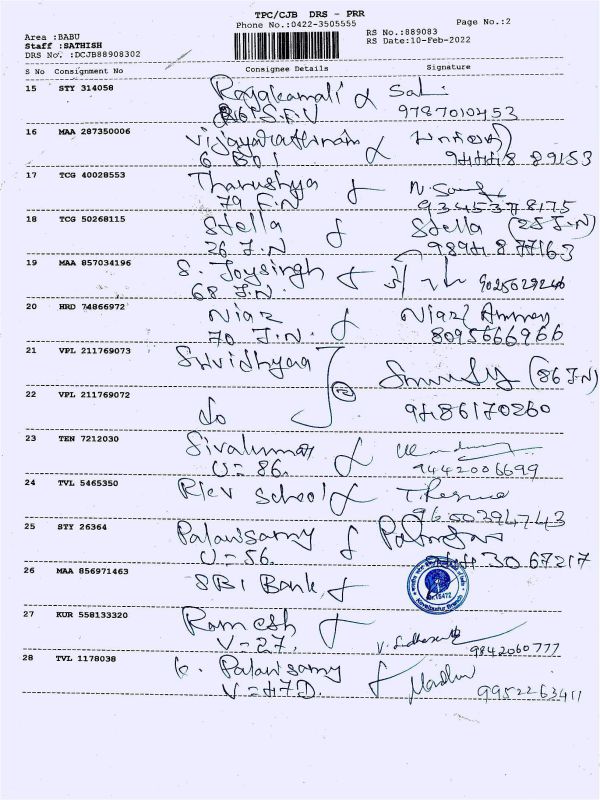 TPC/CJB DRS - PRR
Phone No.:0422-3505555
Page No.:2
Area :BABU
Staff :SATHISH
DRS No. :DCJB88908302
RS No.:889083
RS Date:10-Feb-2022
S No Consignment No Consignee Details Signature
15 STY 314058 Rajakamali
9787010453
16 MAA 287350006 Vijayarathinam
17 TCG 40028553 Tharushya
79 F.N
18 TCG 50268115 Stella Stella (25 J.N)
26 J.N
19 MAA 857034196 S. Joysingh 9025629246
68 J.N.
20 HRD 74866972 Niaz Niaz
70 J.N. 8095666966
21 VPL 211769073 Srividhyaa (86 J.N)
22 VPL 211769072 do 9486170260
23 TEN 7212030 Sivakumar
U=86. 9442006699
24 TVL 5465350 School
25 STY 26364 Palanisamy
U=56. 3067217
26 MAA 856971463 SBI Bank
27 KUR 558133320 Ramesh
V=27. 9842060777
28 TVL 1178038 K. Palanisamy
V=47D. 9952263411